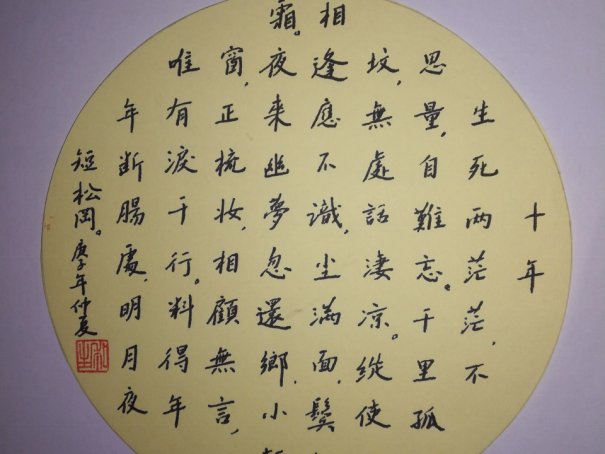 十年
生死两茫茫,不
思量,自難忘。千里孤
坟,無處話淒凉。縱使
相逢應不識,尘滿面,鬓
霜。夜来幽夢忽還鄉,小
窗,正梳妆,相顧無言,
唯有淚千行。料得年
年断腸處,明月夜
短松岡。庚子年仲夏